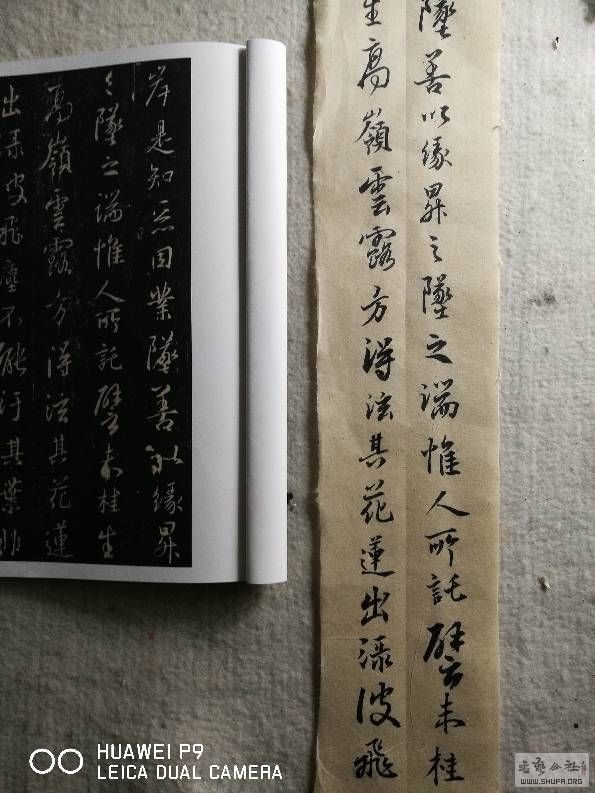 墜善以緣昇之墜之端惟人所託譬夫桂
生高嶺雲露方得泫其花蓮出淥波飛
岸是知惡因業墜善以緣昇
々墜之端惟人所託譬夫桂生
高嶺雲露方得泫其花蓮
出淥波飛塵不能汙其葉非
HUAWEI P9
LEICA DUAL CAMERA
WWW.SHUFA.ORG